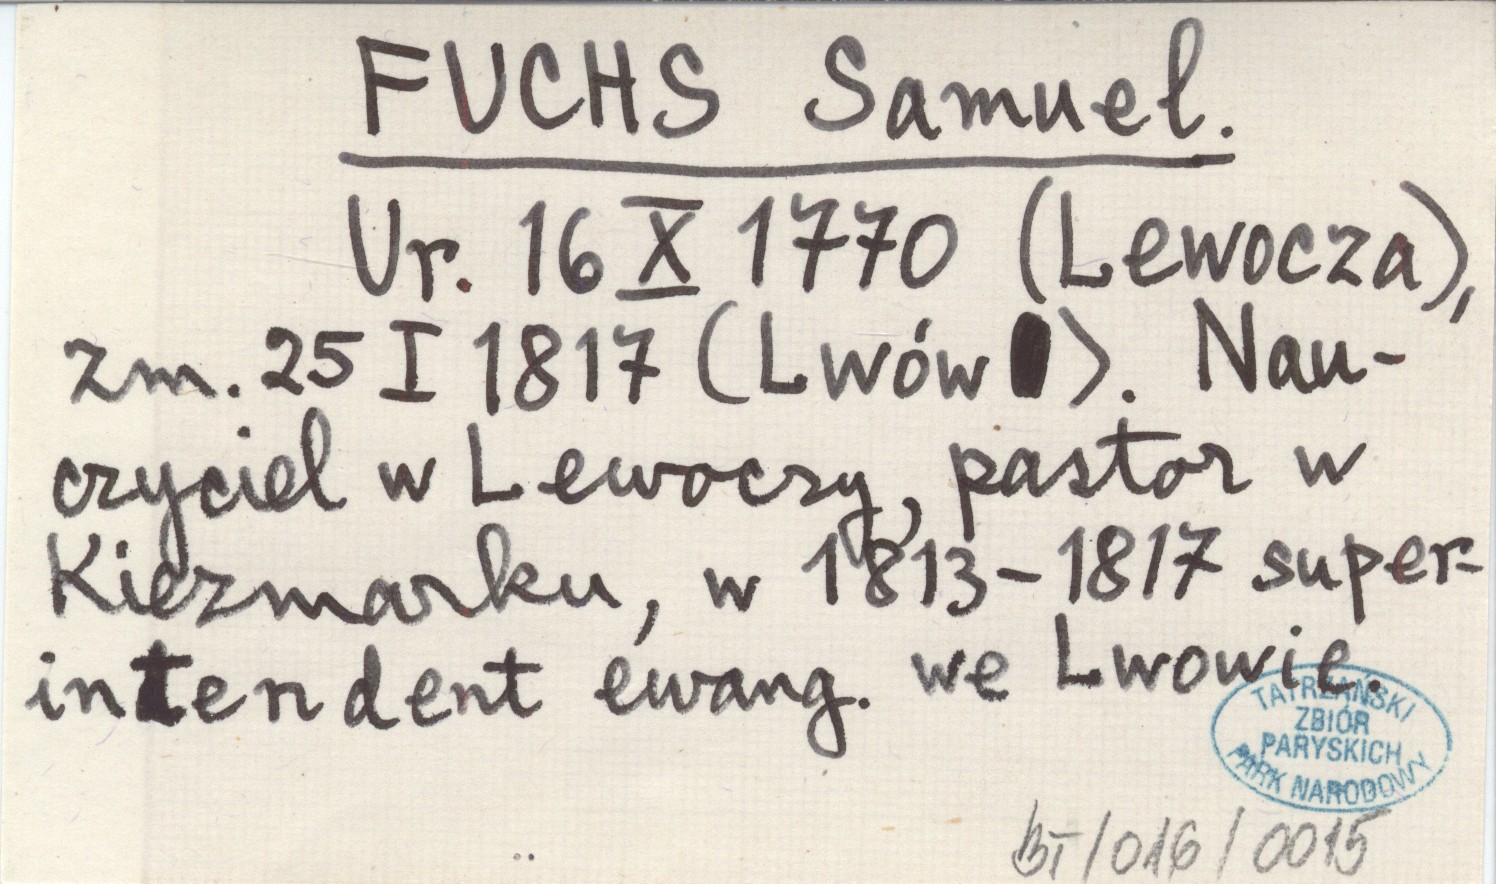 FUCHS Samuel.
Ur. 16 X 1770 (Lewocza),
zm. 25 I 1817 (Lwów). Nau-
czyciel w Lewoczy, pastor w
Kiezmarku, w 1813-1817 super-
intendent ewang. we Lwowie.
TATRZAŃSKI
ZBIÓR
PARYSKICH
PARK NARODOWY
BT/016/0015